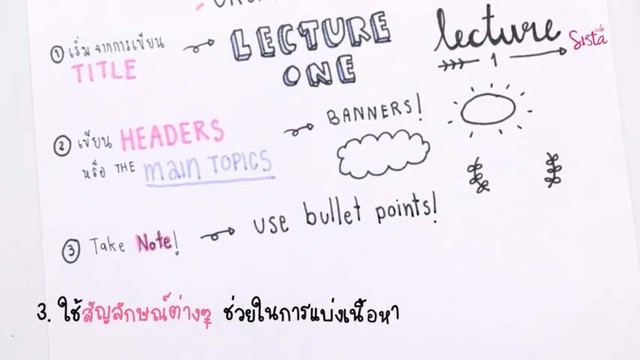 ① เริ่มจากการเขียน TITLE
LECTURE ONE
lecture
1
Sista
cafe
② เขียน HEADERS
หรือ THE main TOPICS
BANNERS!
③ Take Note!
use bullet points!
3. ใช้สัญลักษณ์ต่างๆ ช่วยในการแบ่งเนื้อหา